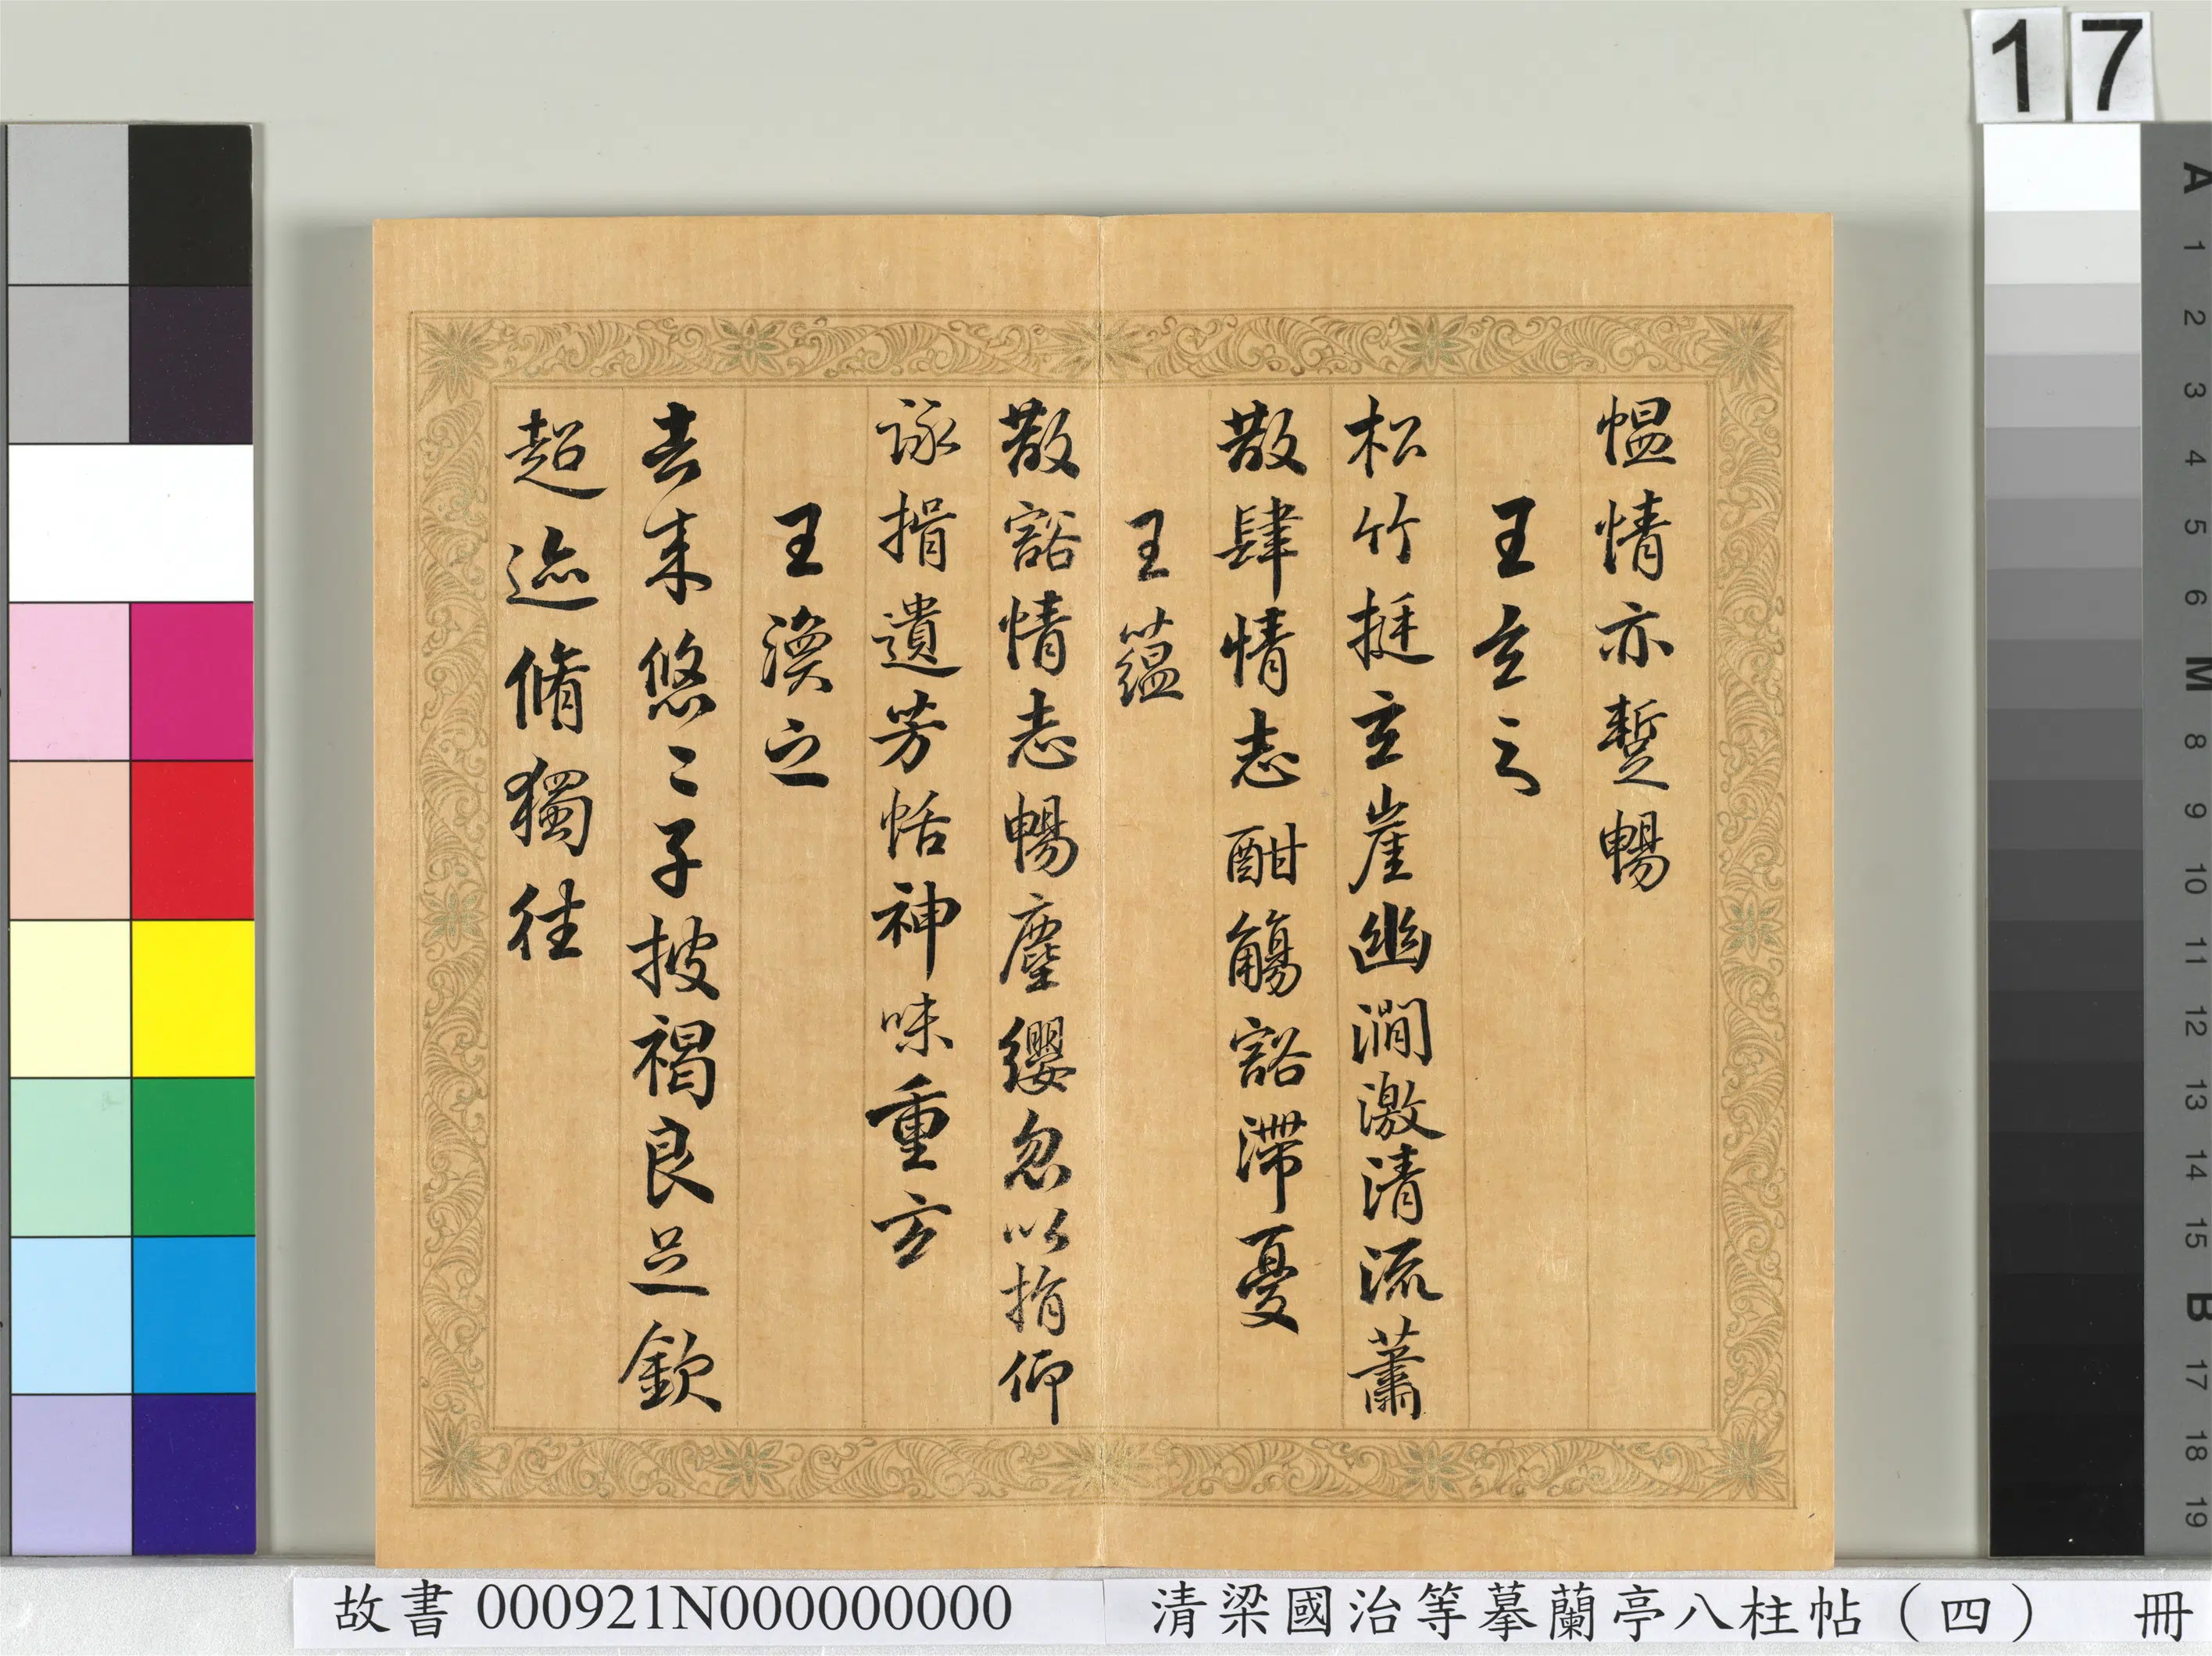 17
慍情亦蹔暢
王玄之
松竹挺玄崖幽澗激清流蕭
散肆情志酣觴豁滯憂
王蘊
散豁情志暢塵纓忽以捐仰
詠揖遺芳恬神味重玄
王渙之
去來悠〻子披褐良足欽
超迹脩獨往
A
1
2
3
4
5
6
M
8
9
10
11
12
13
14
15
B
17
18
19
故書 000921N000000000
清梁國治等摹蘭亭八柱帖（四） 冊